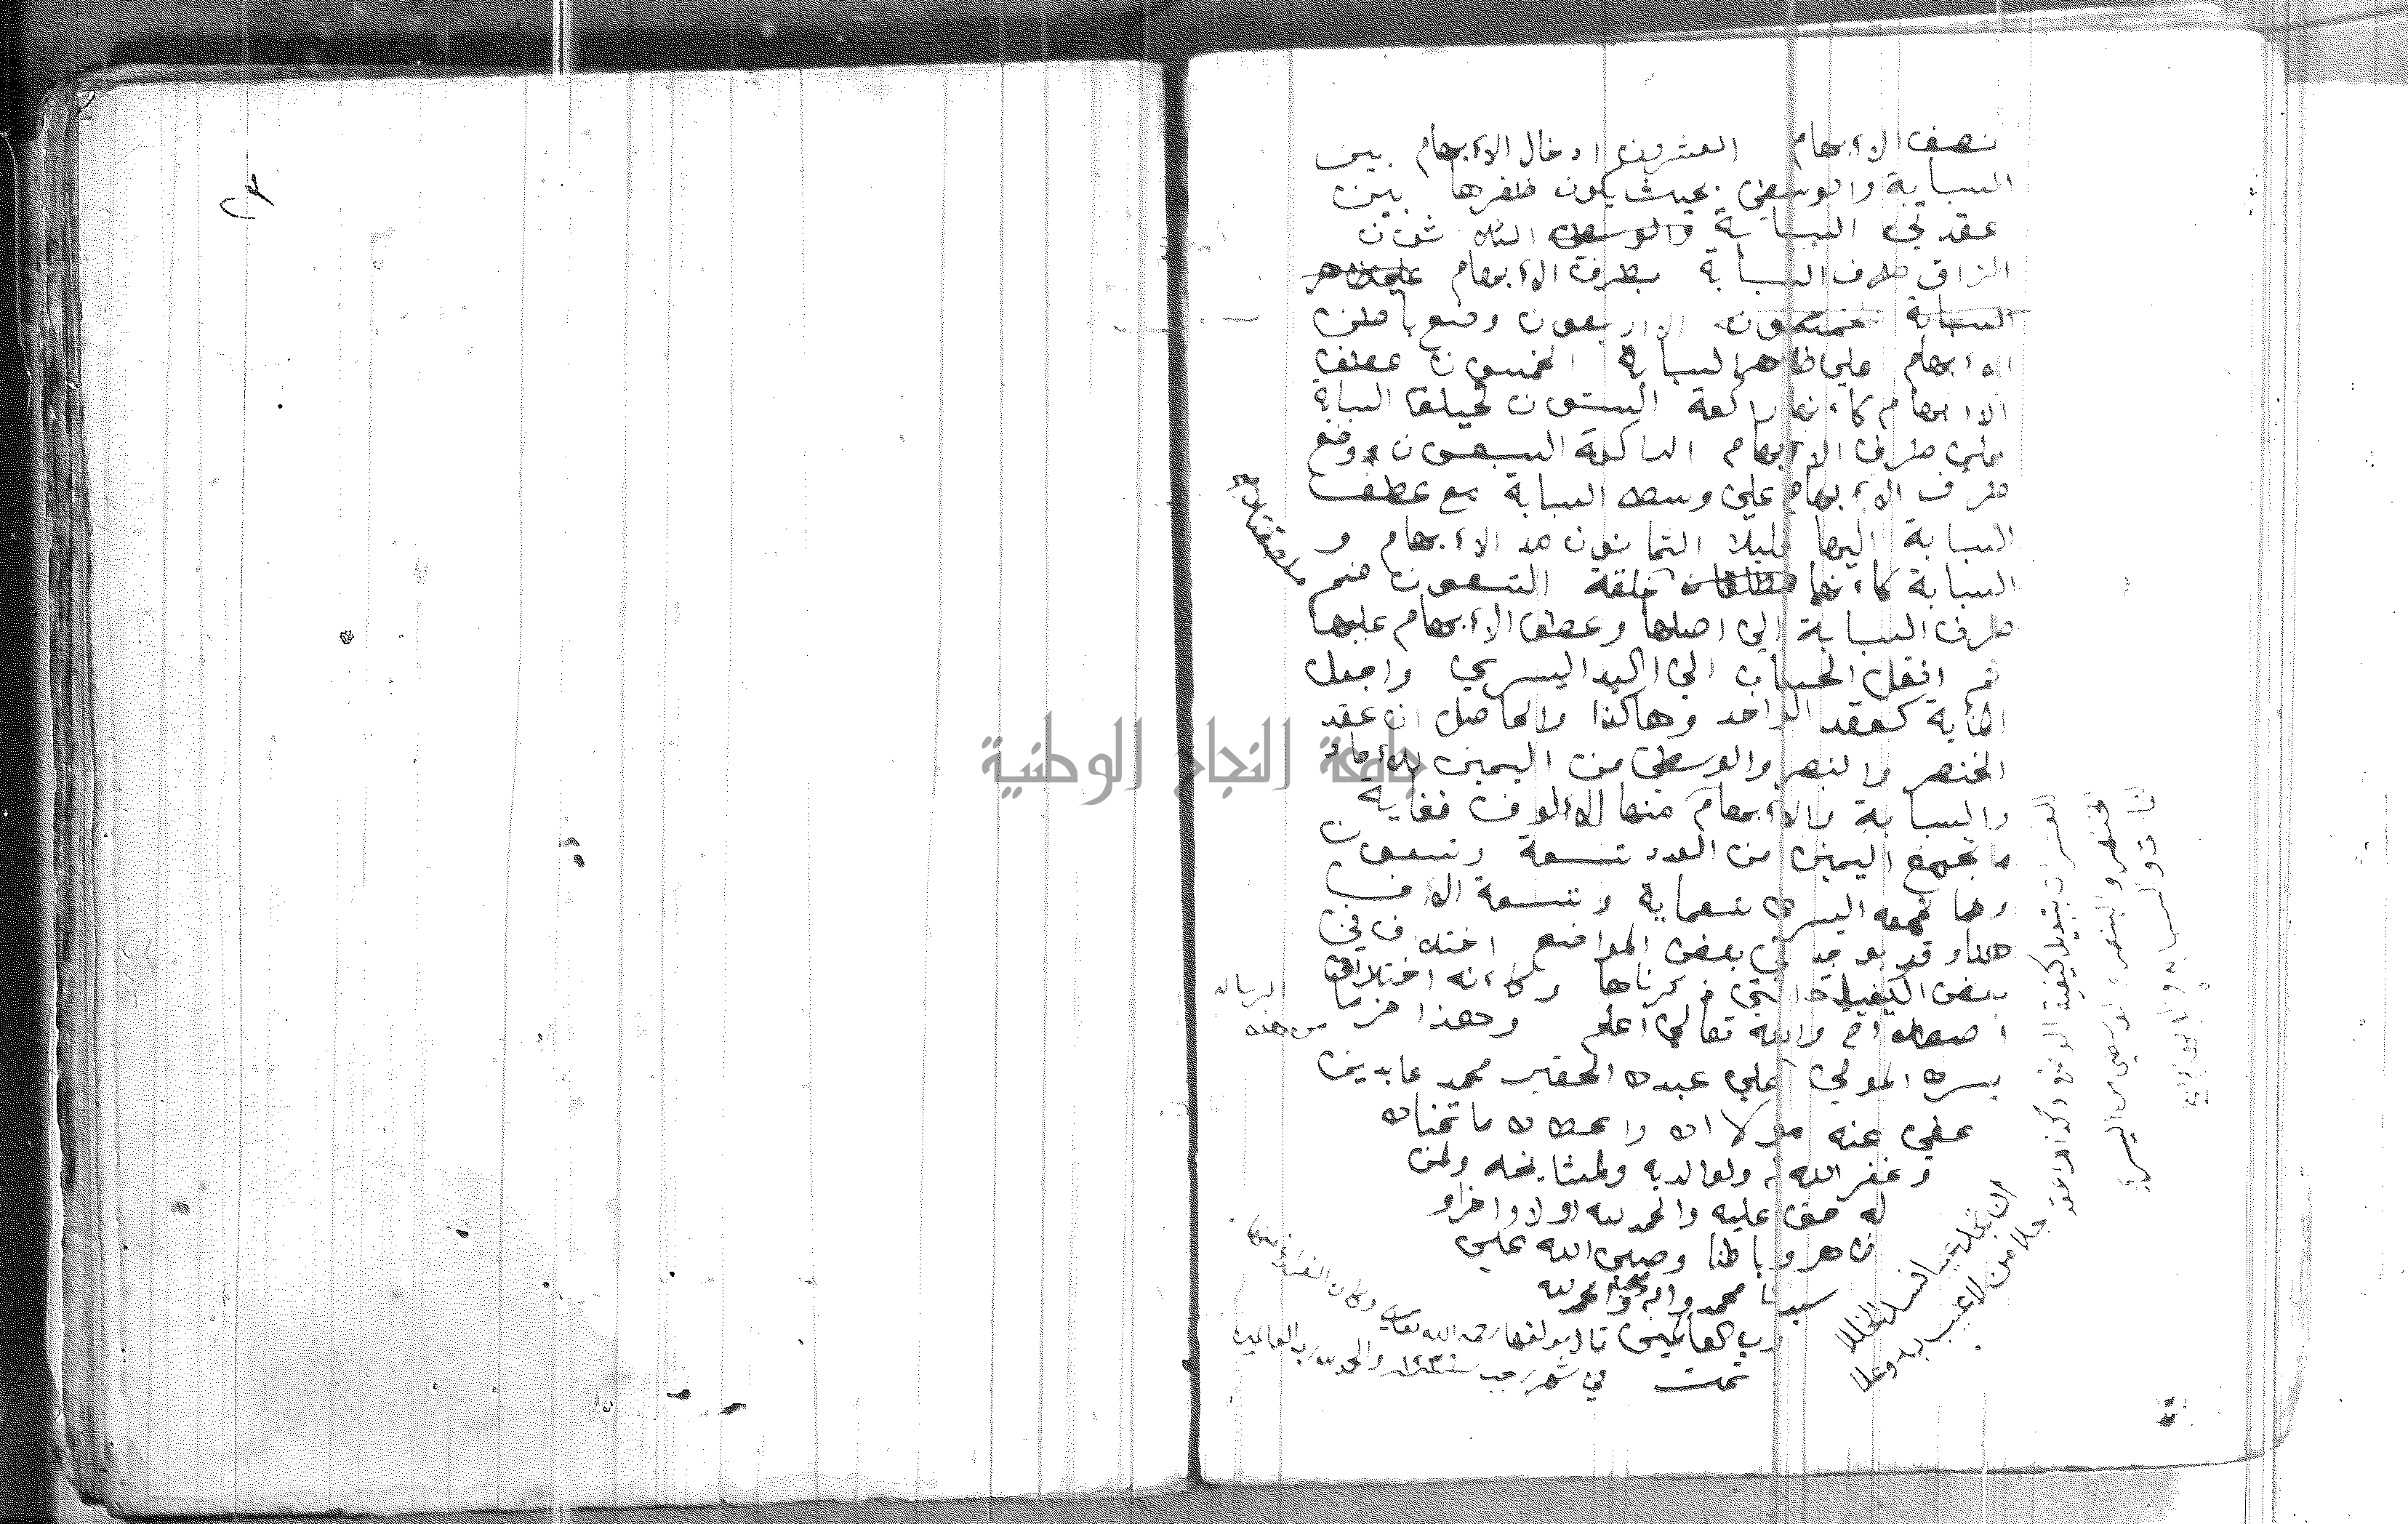 نصف الاءبهام العشرون ادخال الاءبهام بين
السبابة والوسطى بحيث يكون ظفرها بين
عقدتي السبابة والوسطى الثلاثون
الزاق طرف السبابة بطرف الاءبهام علي ظاهر
السبابة خمسون الاربعون وضع باطن
الاءبهام علي ظاهر السبابة الخمسون عطف
الاءبهام كاءنها راكعة الستون تحليق السبابة
علي طرف الاءبهام الراكعة السبعون وضع
طرف الاءبهام علي وسط السبابة مع عطف
السبابة اليها قليلا الثمانون مد الاءبهام و
السبابة كاءنهما خلقة التسعون ضم
ملصقتان
طرف السبابة الي اصلها وعطف الاءبهام عليها
ثم انقل الحساب الي اليد اليسرى واجعل
الماية كعقد الواحد وهاكذا والحاصل ان عقد
الخنصر والبنصر والوسطى من اليمين للاءحاد
والسبابة والاءبهام منها للاءلوف فغاية
ما تجمع اليمين من العدد تسعة وتسعون
وما تجمعه اليسرى تسعماية وتسعة الاف
هذا وقد يوجد في بعض المواضع اختلاف في
بعض الكيفيات التي ذكرناها وكاءنه اختلاف
اصطلاح والله تعالى اعلم وهذا اخر ما
من هذه
الرسالة
يسره المولى علي عبده الحقير محمد عابدين
عفي عنه مولاه واعطاه ما تمناه
وغفر الله له ولوالديه ولمشايخه ولمن
له حق عليه والحمد لله اولا واخرا و
ظاهرا وباطنا وصلى الله علي
سيدنا محمد واله وصحبه والحمد لله
رب العالمين قال مولفها رحمه الله تعالى وكان الفراغ منها
تمت في شهر رجب سنة والحمد لله رب العالمين
العشرات بتبديل كيفية الوضع وكذا عقد
الخنصر والبنصر والوسطى من اليسرى
ان تجد عيبا فسد الخللا
جل من لا عيب فيه وعلا
٢٣
جامعة النجاح الوطنية